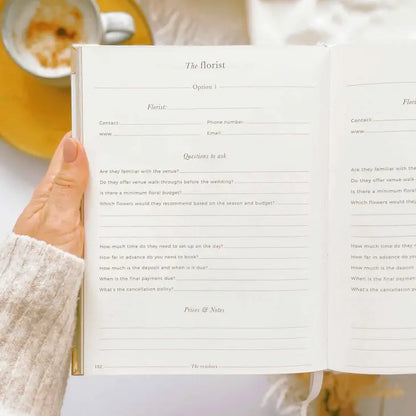 The florist
Option 1
Florist:
Contact: Phone number:
www. Email:
Questions to ask
Are they familiar with the venue?
Do they offer venue walk-throughs before the wedding?
Is there a minimum floral budget?
Which flowers would they recommend based on the season and budget?
How much time do they need to set up on the day?
How far in advance do you need to book?
How much is the deposit and when is it due?
When is the final payment due?
What's the cancellation policy?
Prices & Notes
182 The vendors
Flori
Contact:
www.
Are they familiar with the
Do they offer venue walk-
Is there a minimum floral
Which flowers would they
How much time do they
How far in advance do yo
How much is the deposit
When is the final payment
What's the cancellation p